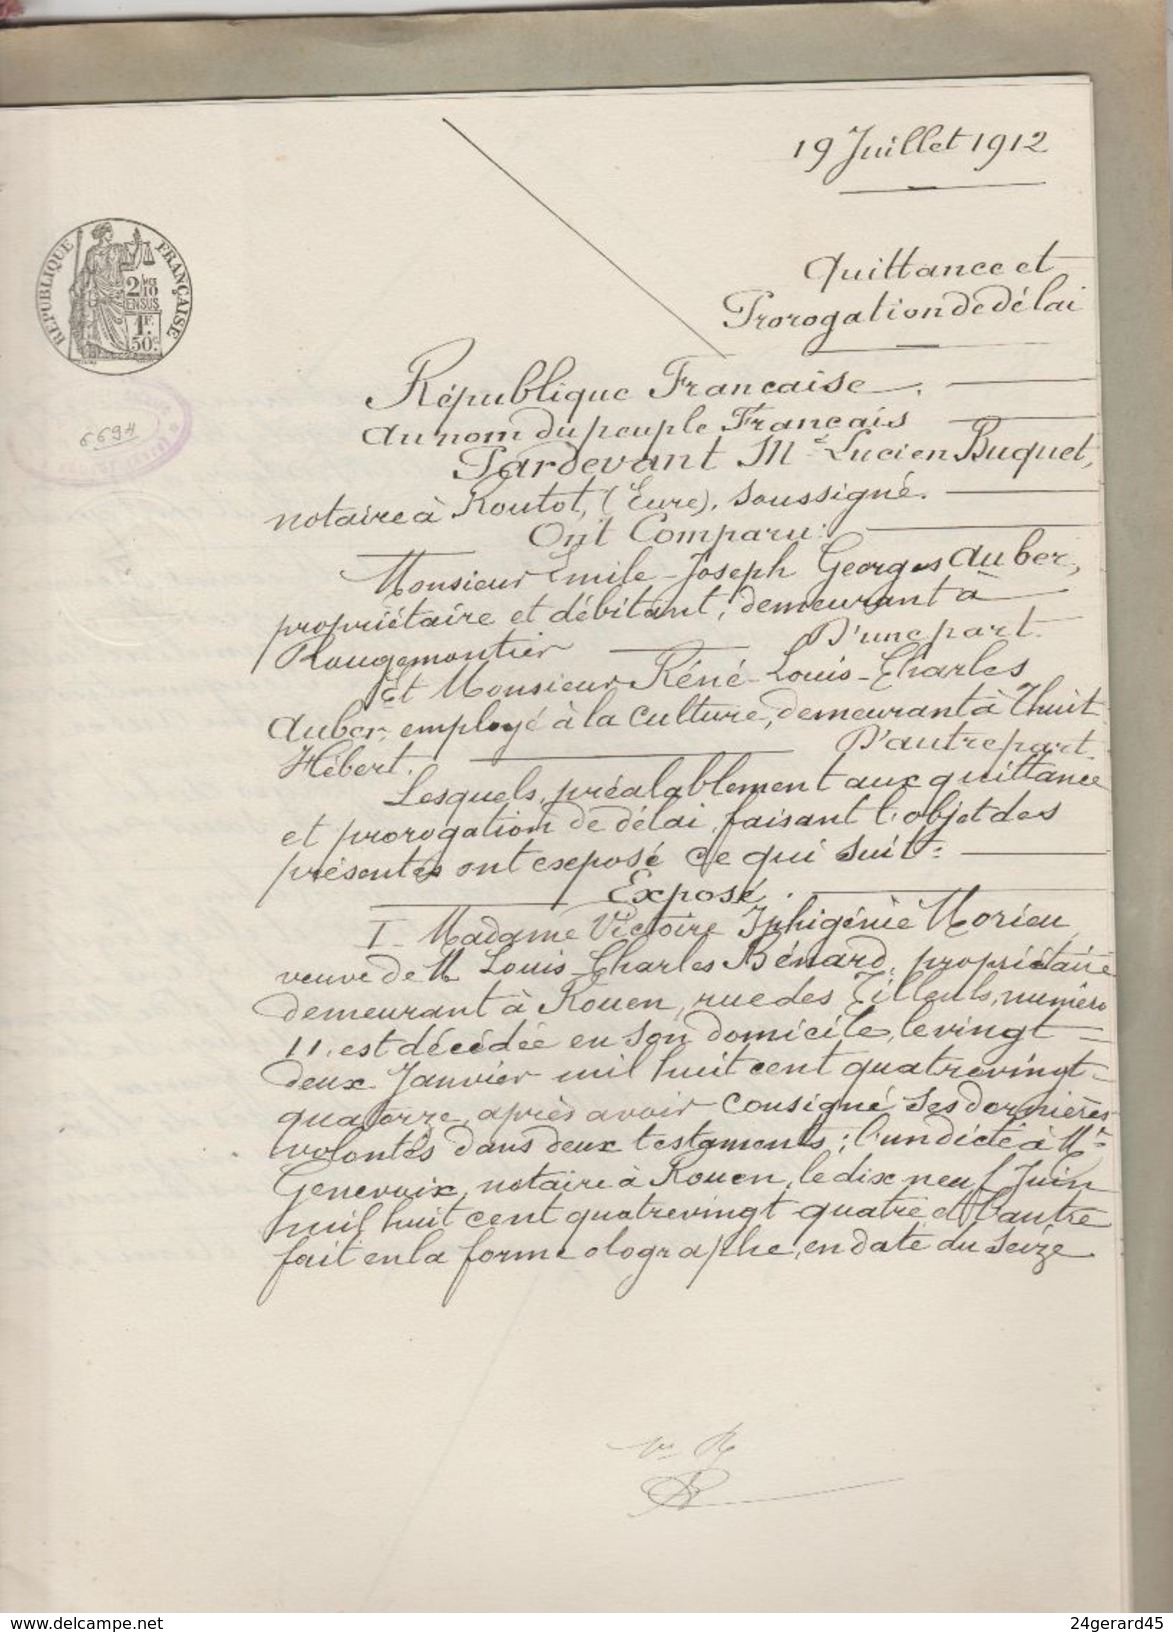 19 Juillet 1912
Quittance et
Prorogation de délai
RÉPUBLIQUE FRANÇAISE
2/10
EN SUS
1F.
50c.
6694
République Francaise
au nom du peuple Francais
Pardevant Me Lucien Buquet,
notaire à Routot, (Eure), soussigné.
Ont Comparu:
Monsieur Emile-Joseph Georges Auber,
propriétaire et débitant, demeurant à
Rougemontier D'une part.
Et Monsieur Réné-Louis-Charles
Auber, employé à la culture, demeurant à Thuit
Hébert. D'autre part.
Lesquels, préalablement aux quittance
et prorogation de délai, faisant l'objet des
présentes ont exposé ce qui suit:
Exposé.
I- Madame Victoire Iphigénie Morieu
veuve de M Louis-Charles Bénard, propriétaire
demeurant à Rouen, rue des Tilleuls, numéro
11, est décédée en son domicile, le vingt=
deux Janvier mil huit cent quatre vingt=
quatorze, après avoir consigné ses dernières
volontés dans deux testaments; l'un dicté à Me
Genevoix, notaire à Rouen, le dix neuf Juin
mil huit cent quatre vingt quatre et l'autre
fait en la forme olographe, en date du seize
www.delcampe.net
24gerard45